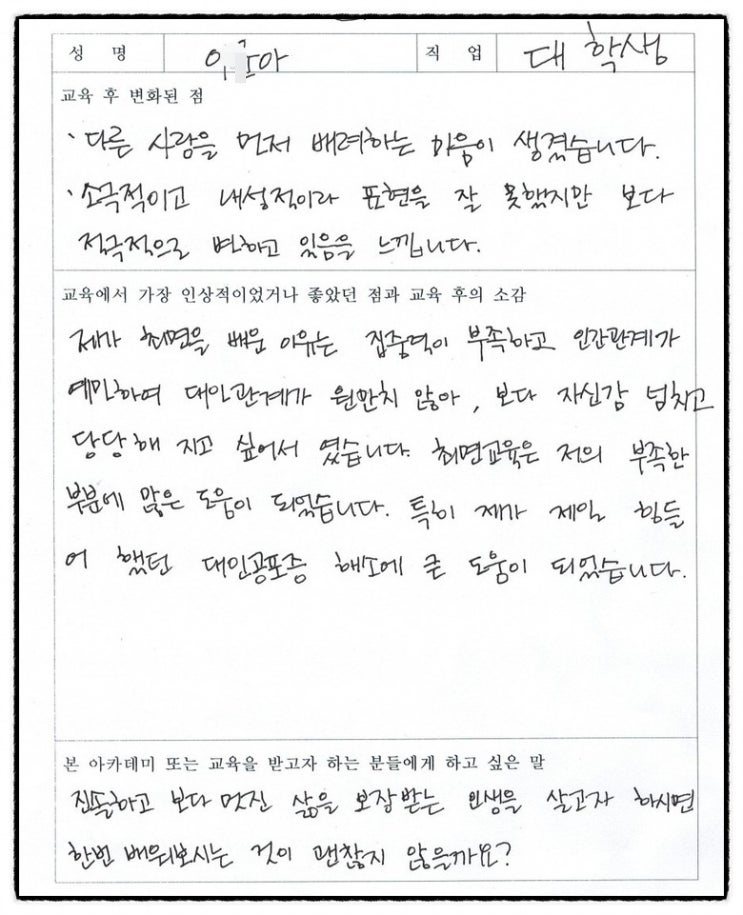 성 명 이 아 직 업 대학생
교육 후 변화된 점
· 다른 사람을 먼저 배려하는 마음이 생겼습니다.
· 소극적이고 내성적이라 표현을 잘 못했지만 보다
적극적으로 변하고 있음을 느낍니다.
교육에서 가장 인상적이었거나 좋았던 점과 교육 후의 소감
제가 최면을 배운 이유는 집중력이 부족하고 인간관계가
예민하여 대인관계가 원만치 않아, 보다 자신감 넘치고
당당해 지고 싶어서 였습니다. 최면교육은 저의 부족한
부분에 많은 도움이 되었습니다. 특히 제가 제일 힘들
어 했던 대인공포증 해소에 큰 도움이 되었습니다.
본 아카데미 또는 교육을 받고자 하는 분들에게 하고 싶은 말
진솔하고 보다 멋진 삶을 보장받는 인생을 살고자 하시면
한번 배워보시는 것이 괜찮지 않을까요?